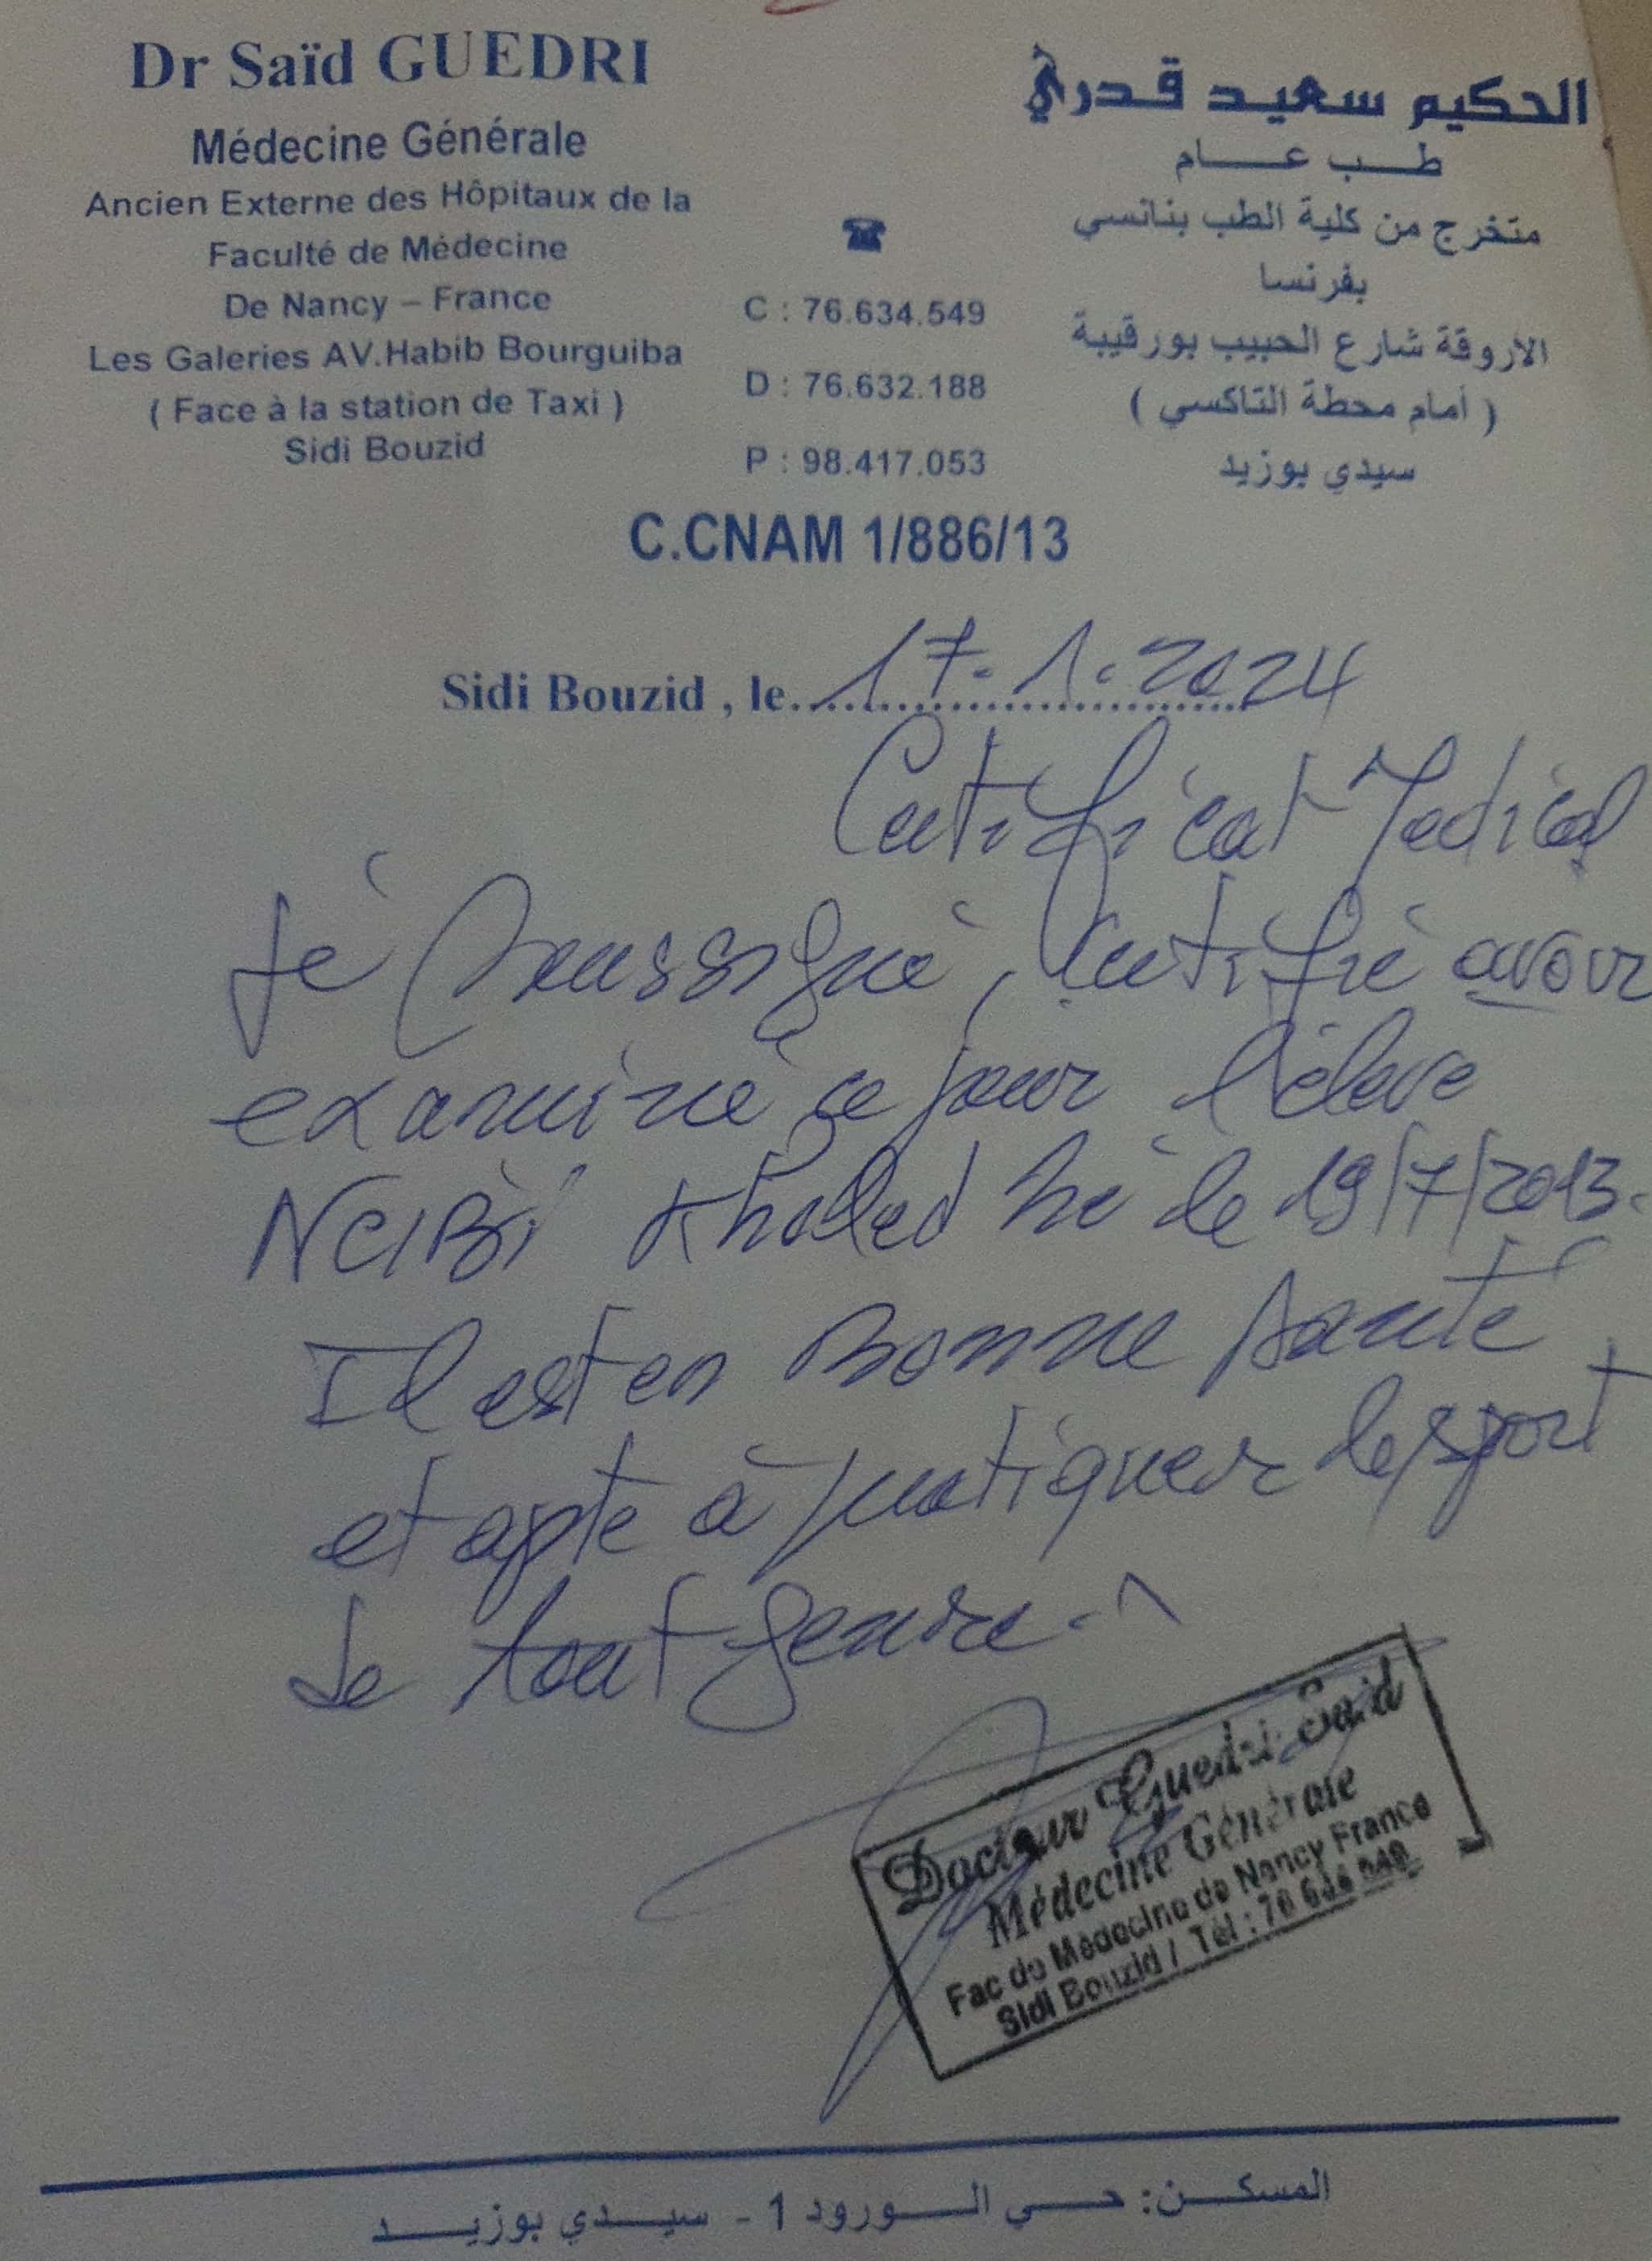 Dr Saïd GUEDRI
Médecine Générale
Ancien Externe des Hôpitaux de la
Faculté de Médecine
De Nancy – France
Les Galeries AV.Habib Bourguiba
( Face à la station de Taxi )
Sidi Bouzid
☎
C : 76.634.549
D : 76.632.188
P : 98.417.053
الحكيم سعيد قدري
طب عام
متخرج من كلية الطب بنانسي
بفرنسا
الأروقة شارع الحبيب بورقيبة
( أمام محطة التاكسي )
سيدي بوزيد
C.CNAM 1/886/13
Sidi Bouzid , le 17.1.2024
Certificat Medical
Je soussigné, certifie avoir
examiné ce jour l'élève
NCIBI Khaled né le 19/7/2013.
Il est en Bonne santé
et apte à pratiquer le sport
de tout genre.
Docteur Guedri Said
Médecine Générale
Fac de Médecine de Nancy France
Sidi Bouzid / Tél : 76 634 549
المسكن: حي الورود 1 - سيدي بوزيد